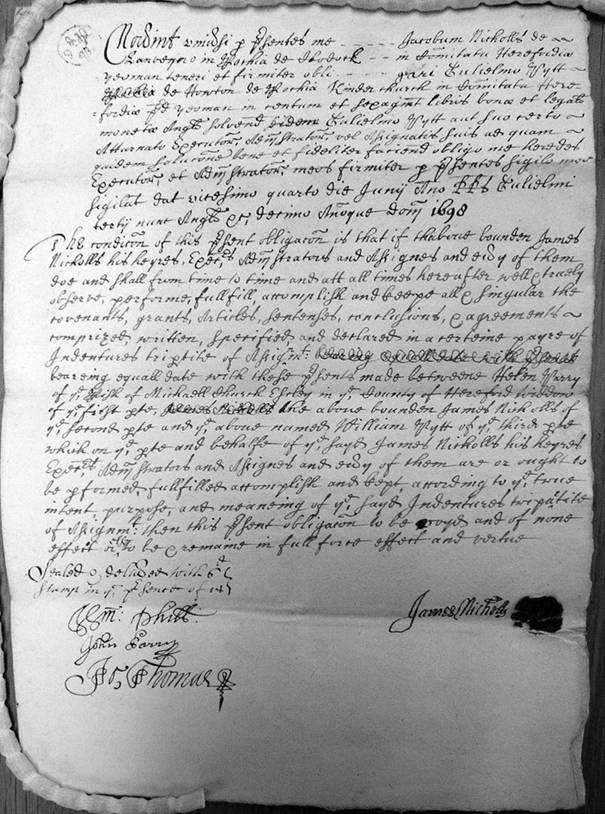 Noverint universi p psentes me - - - - Jacobum Nicholls de
in pochia de in Comitatu Herefordiæ
yeoman teneri et firmiter obli - - - gari Gulielmo Wytt
de Howton de pochia Kinderchurch in Comitatu Here-
fordiæ pd yeoman in centum et sexagint libris bonæ et legalis
monetæ Angl solvend eidem Gulielmo Wytt aut suo certo
Atturnato Executorz, Admstratorz vel Assignatis suis ad quam
quidem solucone bene et fideliter faciend obligo me heredes
Executorz, et Admstratorz meos firmiter p psentes sigillo meo
sigillat dat vicessimo quarto die Junij Ano RRs Gulielmi
tertij nunc Angl &c decimo Anoque Dom 1698
The condicon of this psent obligacon is that if thabove bounden James
Nicholls his heyres, Exec:rs Admstrators and Assignes and evy of them
doe and shall from time to time and att all times hereafter well & truely
observe, performe, fullfill, accomplish and keepe all & singular the
covenants, grants, Articles, sentenses, conclusions, & agreements
comprized written, specified and declared in a certeine payre of
Indentures triptite of Assignmt:
beareing equall date with these psents made betweene Helen Parry
of ye pish of Michaell Church Eskley in ye County of Hereford widdow
of ye first pte, the above bounden James Nicholls of
ye second pte and ye above named William Wytt of ye third pte
which on ye pte and behalfe of ye sayd James Nicholls his heyres
Exec:rs Admstrators and Assignes and evy of them are or ought to
be pformed, fullfilled accomplish and kept according to ye true
intent, purpose, and meaneing of ye sayd Indentures triptite
of Assignmt: then this psent obligacon to be voyd and of none
effect or to be & remaine in full force effect and vertue
Sealed & delivered with 6d
stamp in ye psence of us
Wm: Phill James Nicholls
John Parry
Jo: Thomas